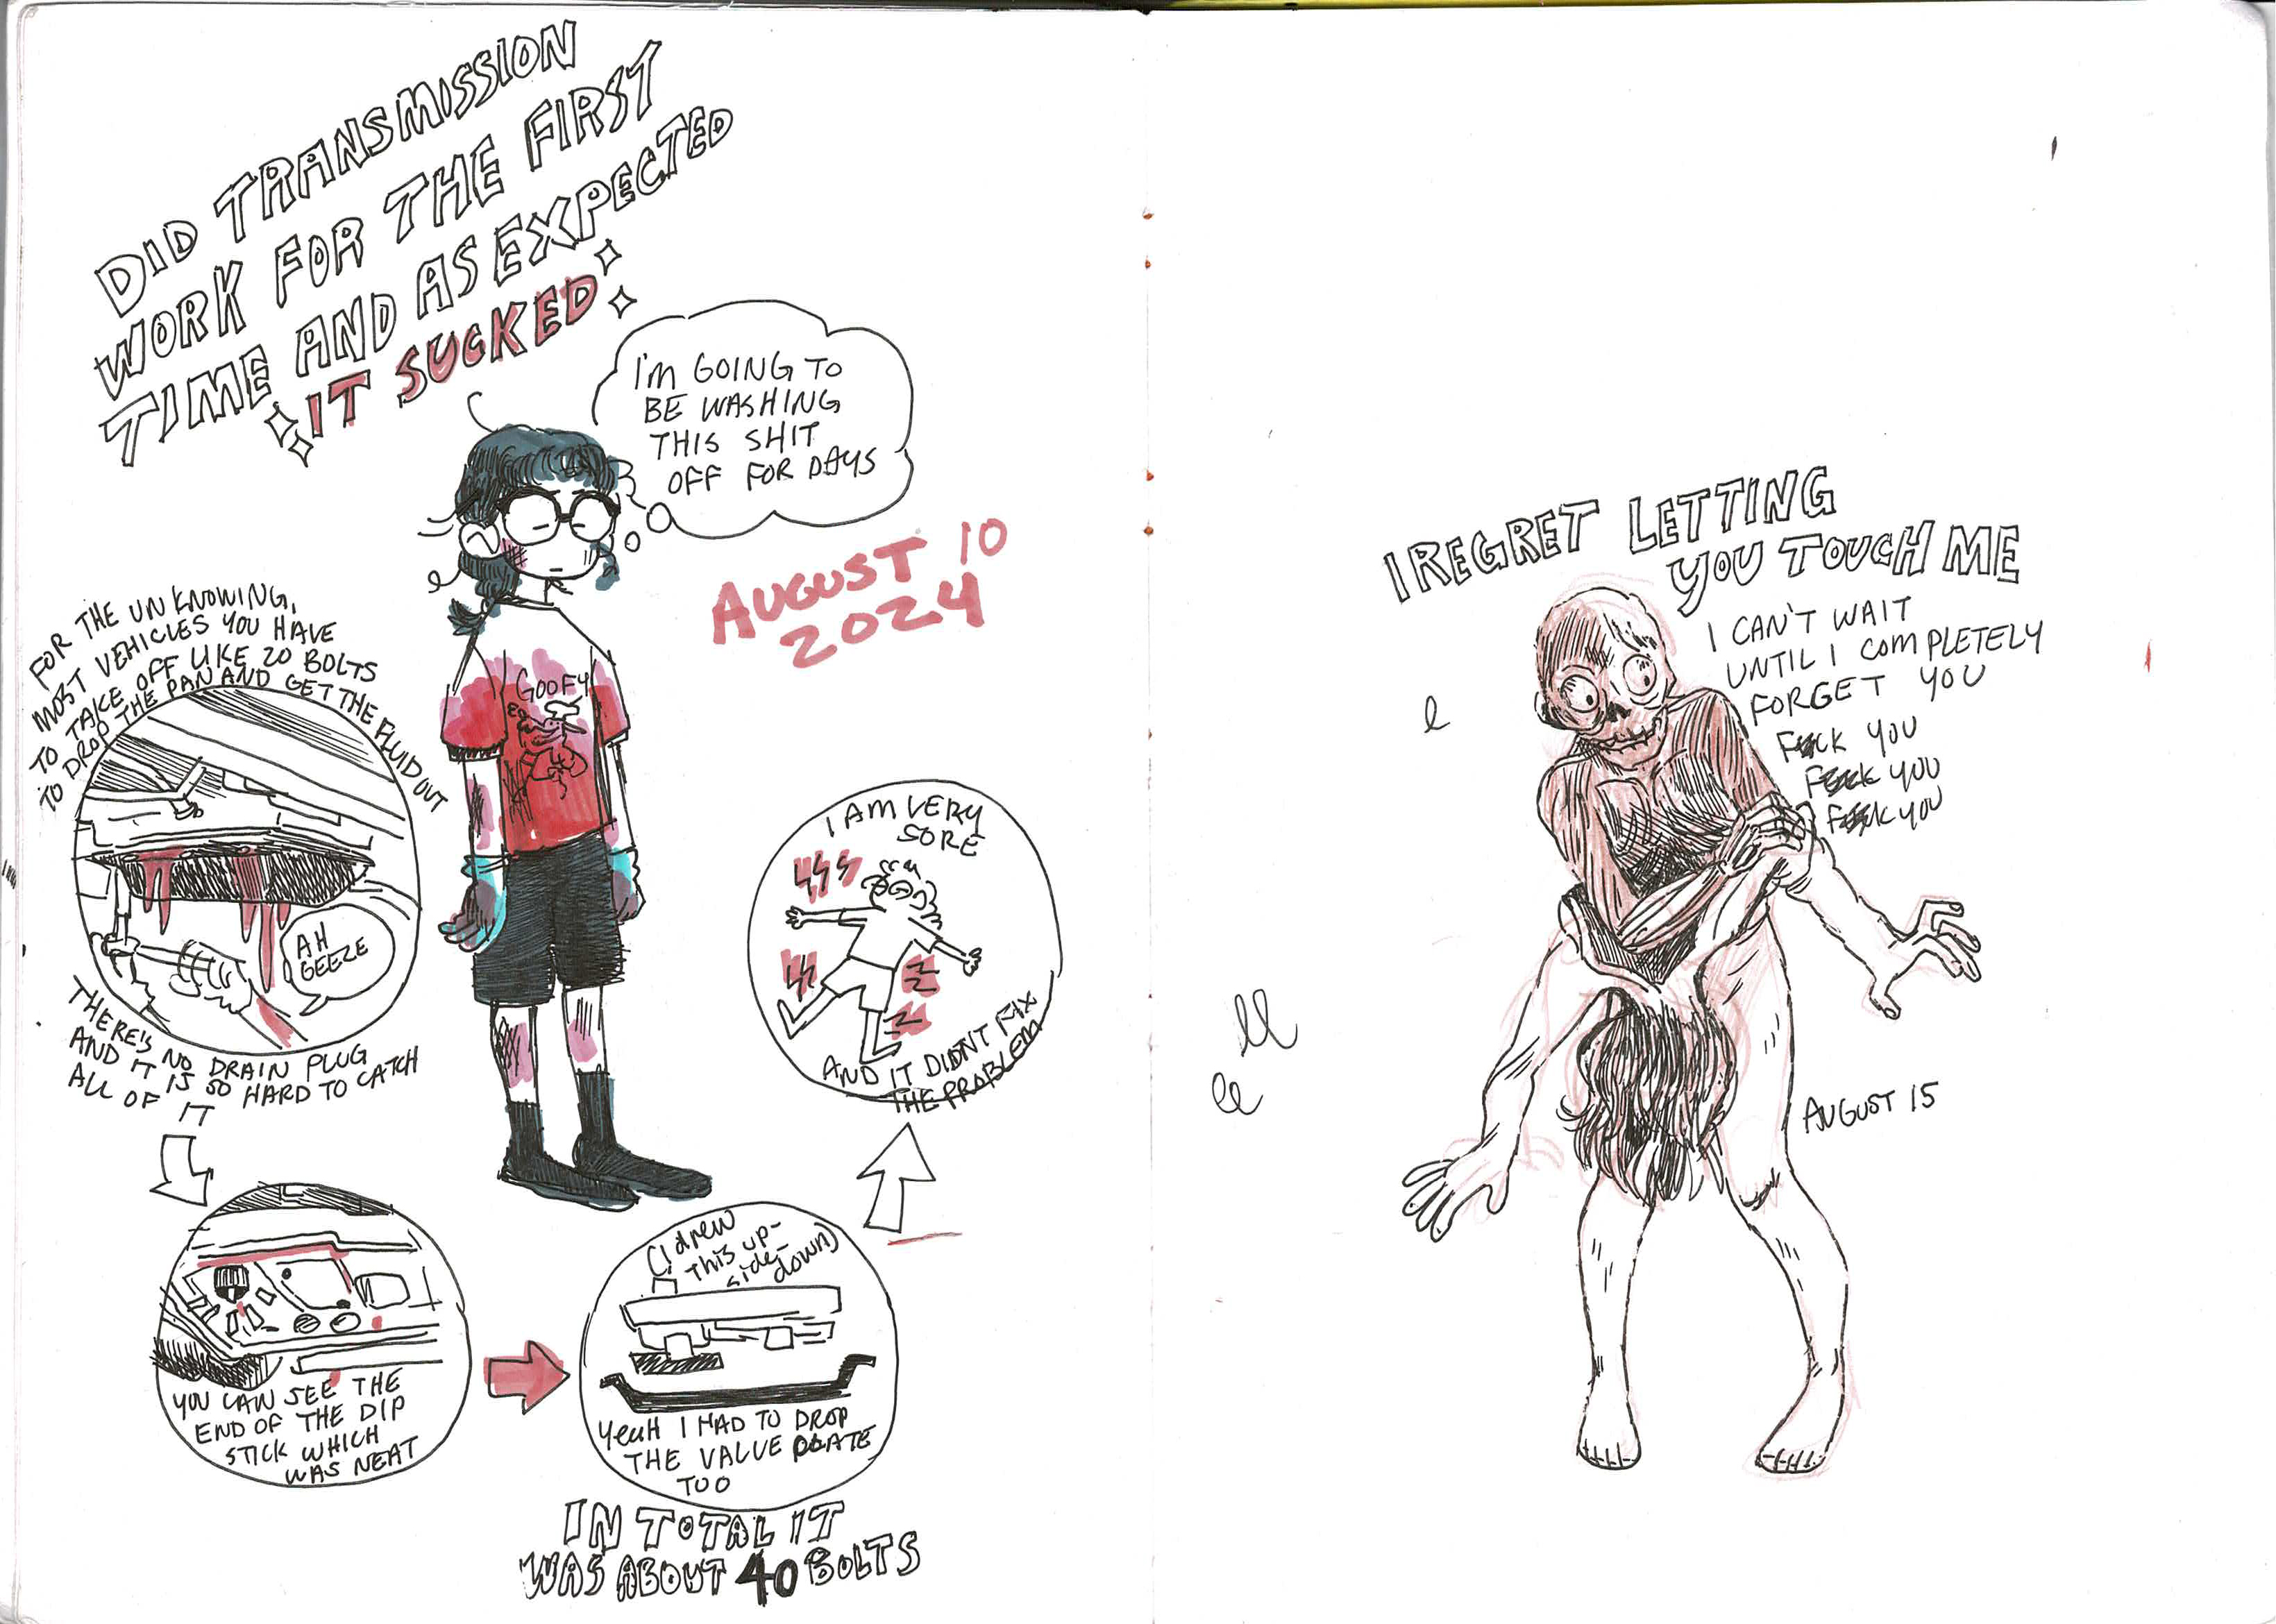 DID TRANSMISSION
WORK FOR THE FIRST
TIME AND AS EXPECTED
IT SUCKED
I'M GOING TO
BE WASHING
THIS SHIT
OFF FOR DAYS
AUGUST 10
2024
GOOFY
FOR THE UNKNOWING,
MOST VEHICLES YOU HAVE
TO TAKE OFF LIKE 20 BOLTS
TO DROP THE PAN AND GET THE FLUID OUT
AH
GEEZE
THERE'S NO DRAIN PLUG
AND IT IS SO HARD TO CATCH
ALL OF IT
YOU CAN SEE THE
END OF THE DIP
STICK WHICH
WAS NEAT
(I drew
this up-
side-
down)
YEAH I HAD TO DROP
THE VALVE PLATE
TOO
IN TOTAL IT
WAS ABOUT 40 BOLTS
I AM VERY
SORE
AND IT DIDNT FIX
THE PROBLEM
I REGRET LETTING
YOU TOUCH ME
I CAN'T WAIT
UNTIL I COMPLETELY
FORGET YOU
FUCK YOU
FUCK YOU
FUCK YOU
AUGUST 15